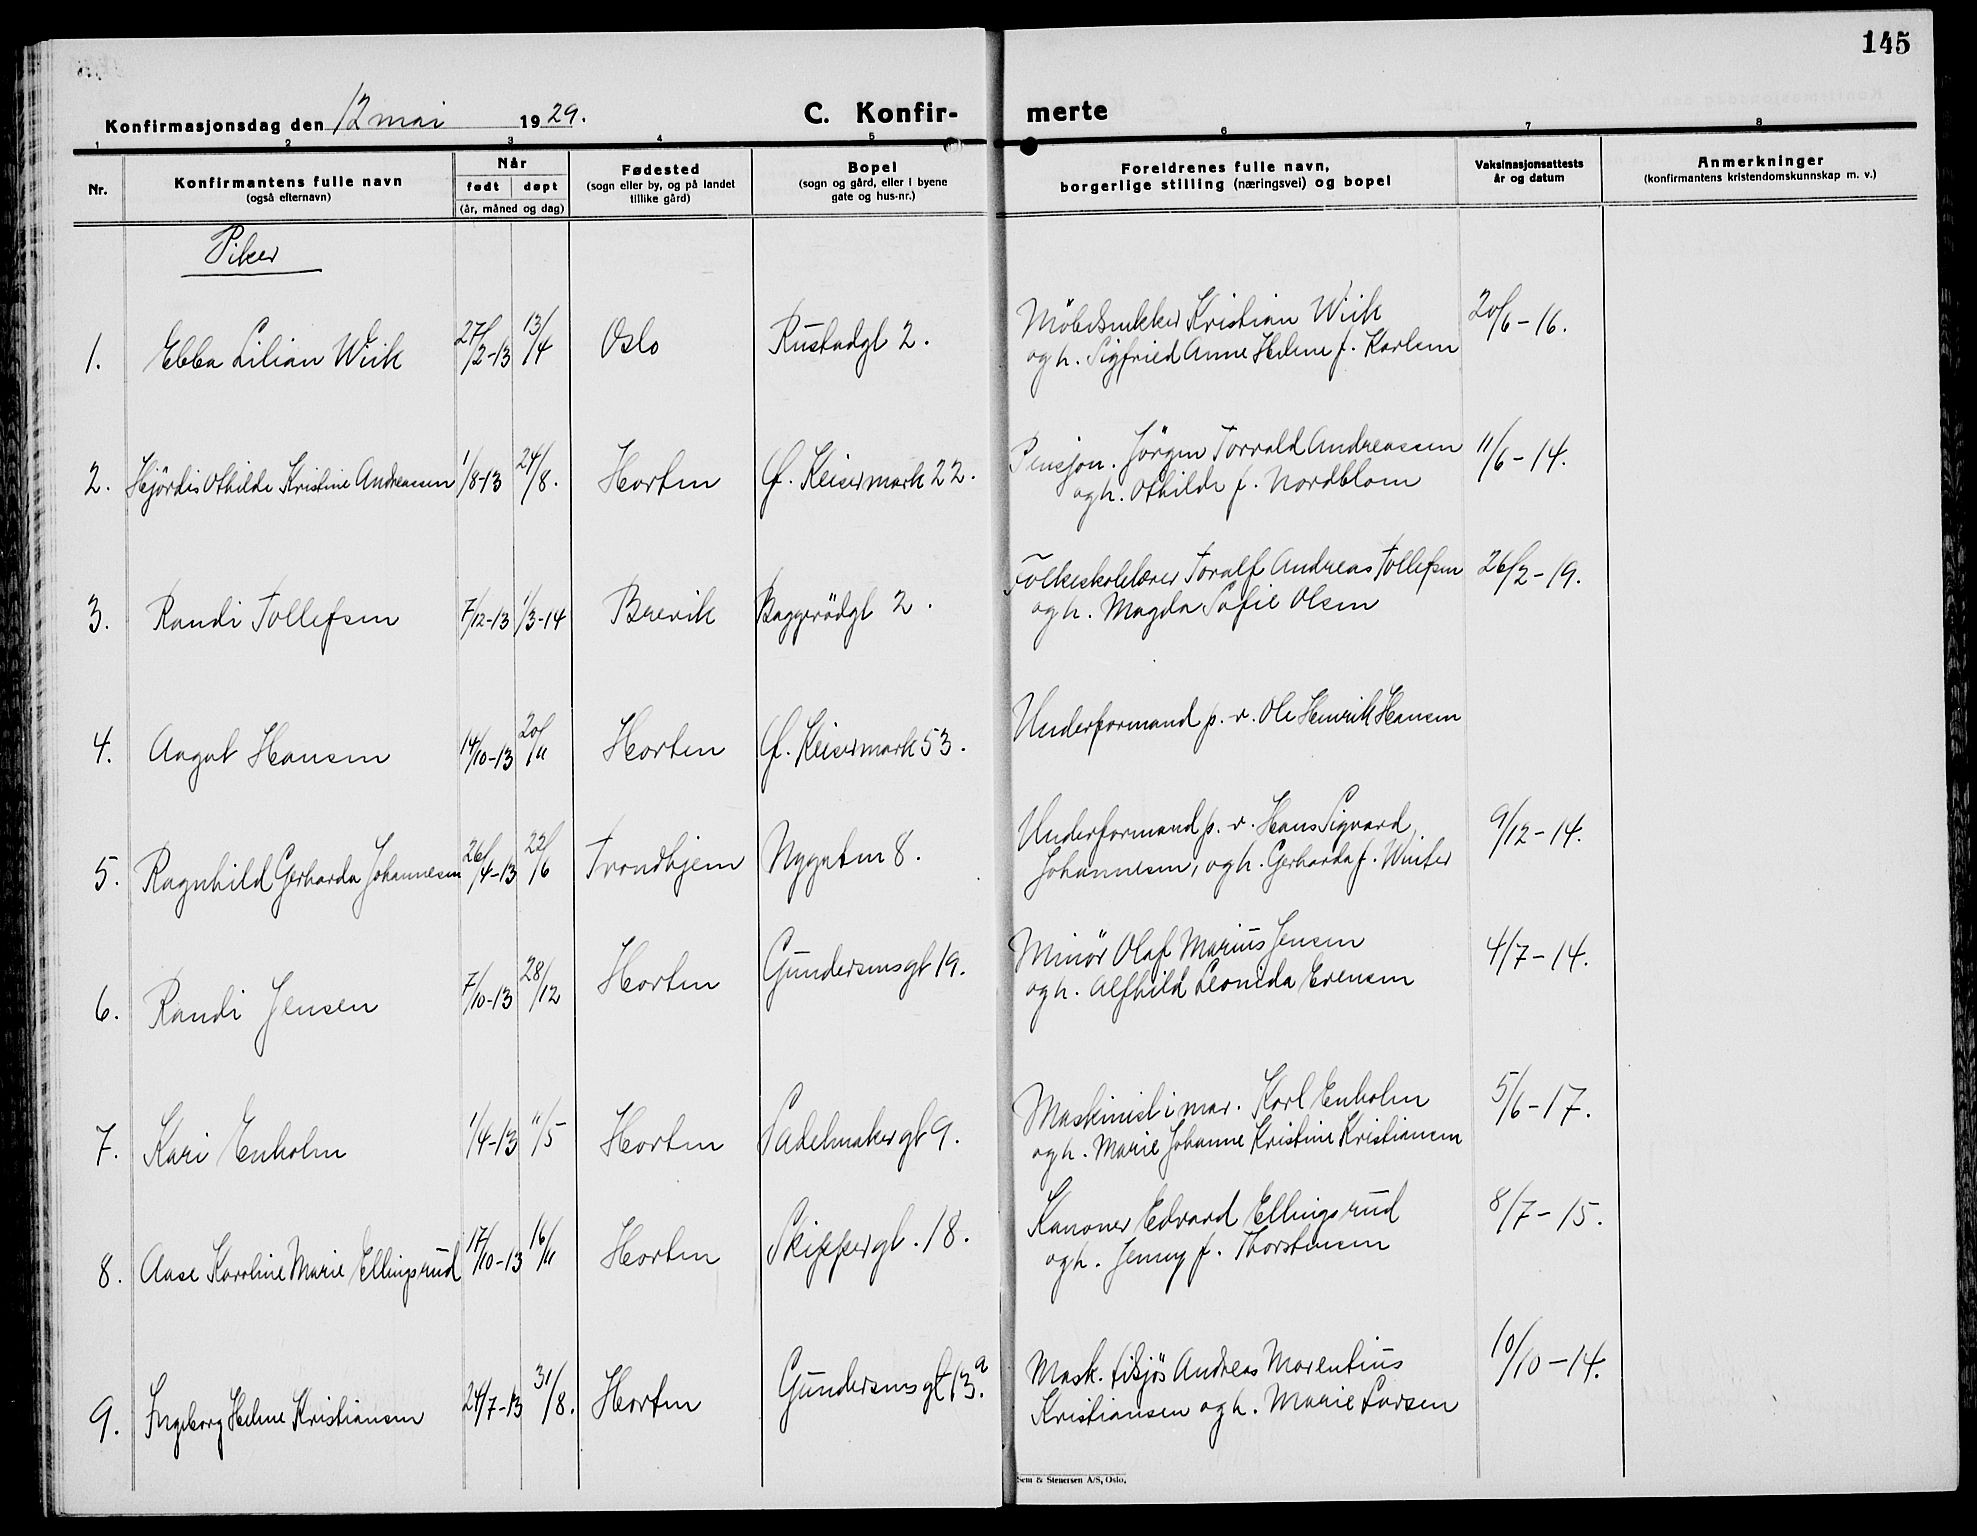 145
Konfirmasjonsdag den 12 mai 1929. C. Konfir- merte
1 2 3 4 5 6 7 8
Nr. Konfirmantens fulle navn (også efternavn) Når født døpt (år, måned og dag) Fødested (sogn eller by, og på landet tillike gård) Bopel (sogn og gård, eller i byene gate og hus-nr.) Foreldrenes fulle navn, borgerlige stilling (næringsvei) og bopel Vaksinasjonsattests år og datum Anmerkninger (konfirmantens kristendomskunnskap m. v.)
Piker
1. Ebba Lilian Wiik 27/2-13 13/4 Oslo Rustadgt 2. Möbelsnekker Kristian Wiik 20/6-16.
og h. Sigfried Anne Helene f. Karlsen
2. Hjördis Othilde Kristine Andreassen 1/8-13 24/8. Horten Keisermark 22. Pensjon. Jörgen Torvald Andreassen 11/6-14.
og h. Othilde f. Nordblom
3. Randi Tollefsen 7/12-13 1/3-14 Brevik Baggerödgt 2. Folkeskolelærer Toralf Andreas Tollefsen 26/2-19.
og h. Magda Sofie Olsen
4. Aagot Hansen 14/10-13 20/11 Horten Keisermark 53. Underformand p. v. Ole Henrik Hansen
5. Ragnhild Gerharda Johannesen 26/4-13 22/6 Trondhjem Nygaten 8. Underformand p. v. Hans Sigvard 9/12-14.
Johannesen, og h. Gerharda f. Winter
6. Randi Jensen 7/10-13 28/12 Horten Gundersensgt 19. Minör Olaf Marius Jensen 4/7-14.
og h. Alfhild Leonida Evensen
7. Kari Enholm 1/4-13 11/5 Horten Sadelmakergt 9. Maskinist i mar. Karl Enholm 5/6-17.
og h. Marie Johanne Kristine Kristiansen
8. Aase Karoline Marie Ellingsrud 17/10-13 16/11 Horten Skippergt. 18. Kanoner Edvard Ellingsrud 8/7-15.
og h. Jenny f. Thorstensen
9. Ingeborg Helene Kristiansen 24/7-13 31/8. Horten Gundersensgt 13a. Mask. tilsjös Andreas Marentius 10/10-14.
Kristiansen og h. Marie Larsen
Sem & Stenersen A/S, Oslo.